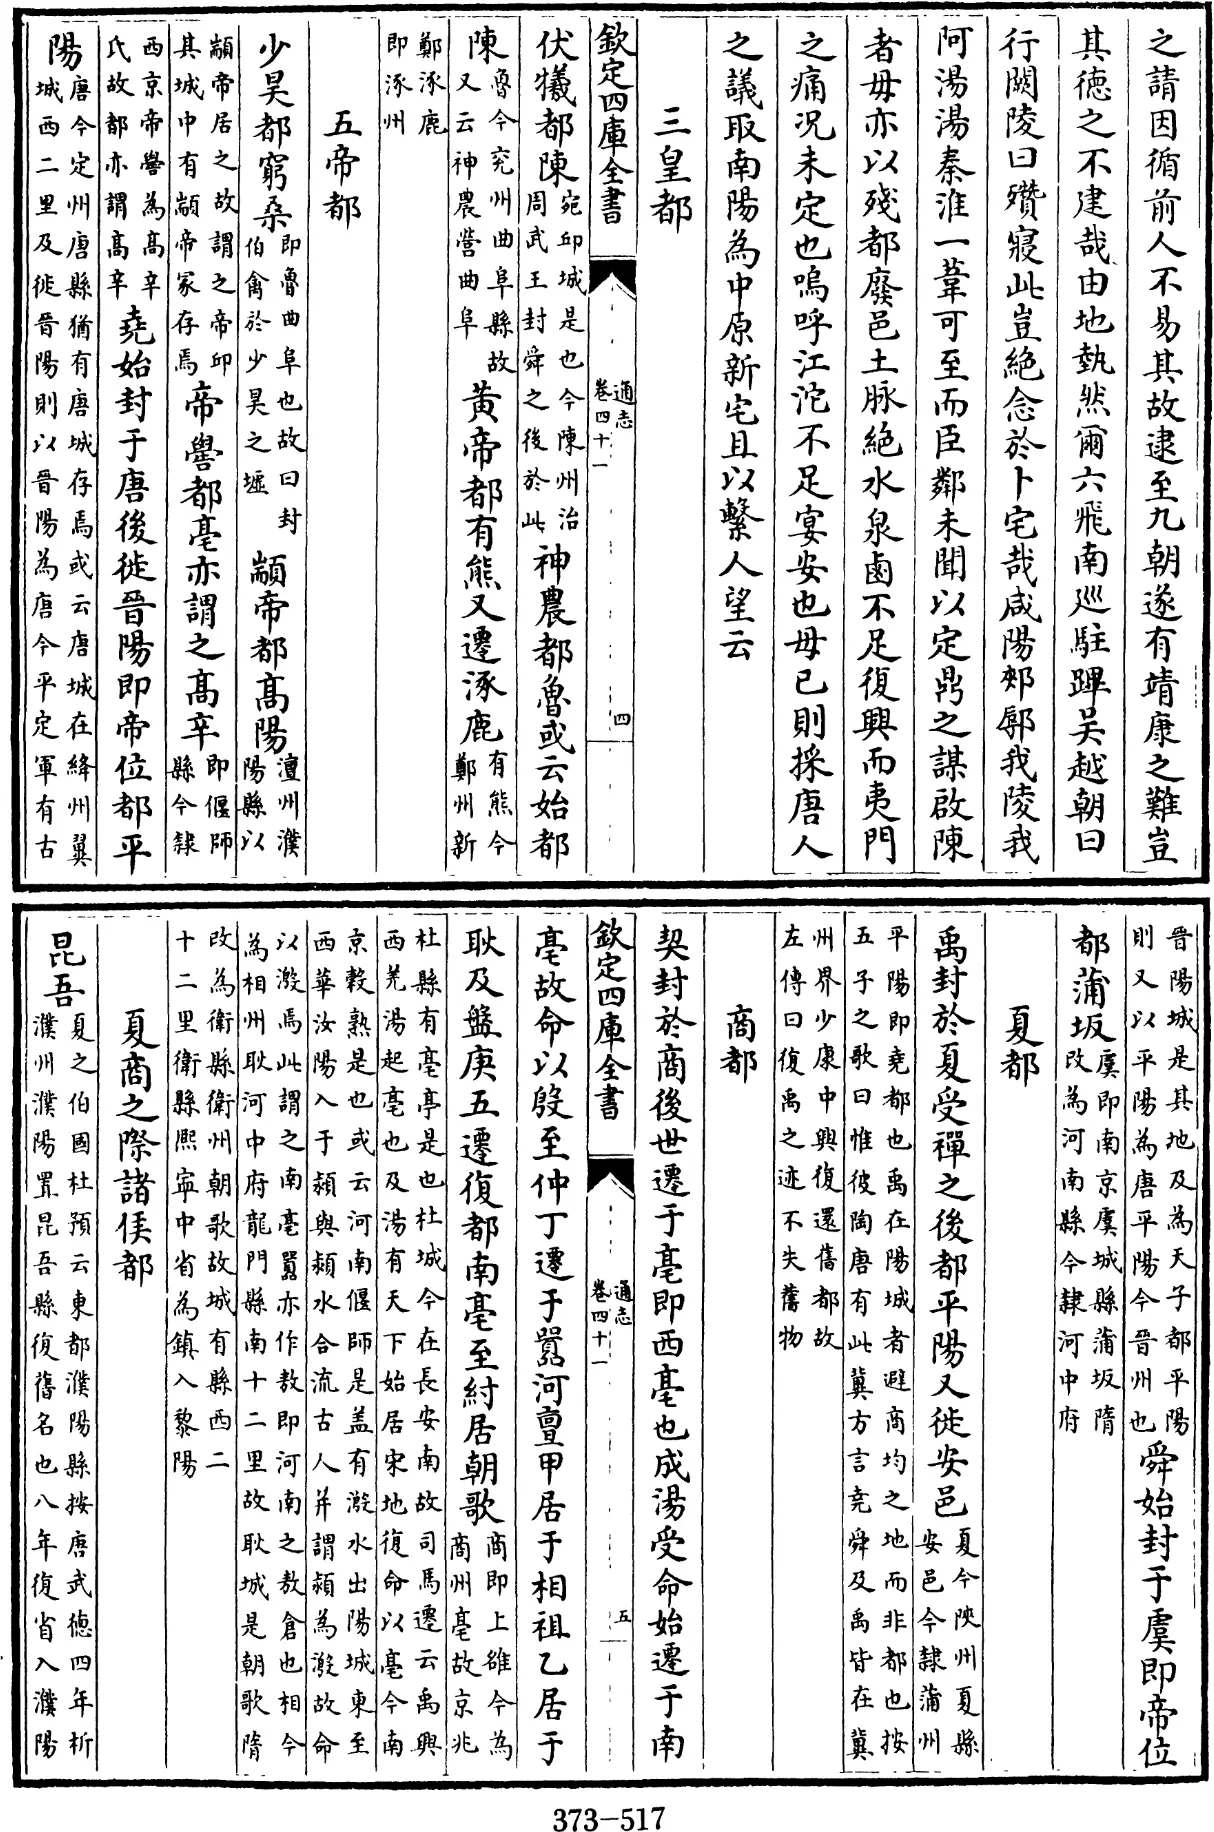 之請因循前人不易其故逮至九朝遂有靖康之難豈
其德之不建哉由地埶然爾六飛南廵駐蹕吴越朝曰
行闕陵曰殯寢此豈絶念於卜宅哉咸陽郟鄏我陵我
阿湯湯秦淮一葦可至而臣鄰未聞以定鼎之謀啟陳
者毋亦以殘都廢邑土脉絶水泉鹵不足復興而夷門
之痛况未定也嗚呼江沱不足宴安也毋已則採唐人
之議取南陽為中原新宅且以繫人望云
三皇都
欽定四庫全書
通志
卷四十一
四
伏犧都陳宛邱城是也今陳州治周武王封舜之後於此神農都魯或云始都
陳魯今兖州曲阜縣故又云神農營曲阜黄帝都有熊又遷涿鹿有熊今鄭州新
鄭涿鹿即涿州
五帝都
少昊都窮桑即魯曲阜也故曰封伯禽於少昊之墟顓帝都髙陽澶州濮陽縣以
顓帝居之故謂之帝邱其城中有顓帝冢存焉帝嚳都亳亦謂之髙辛即偃師縣今隸
西京帝嚳為髙辛氏故都亦謂髙辛堯始封于唐後徙晉陽即帝位都平
陽唐今定州唐縣猶有唐城存焉或云唐城在絳州翼城西二里及徙晉陽則以晉陽為唐今平定軍有古
晉陽城是其地及為天子都平陽則又以平陽為唐平陽今晉州也舜始封于虞即帝位
都蒲坂虞即南京虞城縣蒲坂隋改為河南縣今隸河中府
夏都
禹封於夏受禪之後都平陽又徙安邑夏今陜州夏縣安邑今隸蒲州
平陽即堯都也禹在陽城者避商均之地而非都也按五子之歌曰惟彼陶唐有此冀方言堯舜及禹皆在冀
州界少康中興復還舊都故左傳曰復禹之迹不失舊物
商都
契封於商後世遷于亳即西亳也成湯受命始遷于南
欽定四庫全書
通志
卷四十一
五
亳故命以殷至仲丁遷于囂河亶甲居于相祖乙居于
耿及盤庚五遷復都南亳至紂居朝歌商即上雒今為商州亳故京兆
杜縣有亳亭是也杜城今在長安南故司馬遷云禹興西羌湯起亳也及湯有天下始居宋地復命以亳今南
京穀熟是也或云河南偃師是盖有㶏水出陽城東至西華汝陽入于潁與潁水合流古人并謂潁為㶏故命
以㶏焉此謂之南亳囂亦作敖即河南之敖倉也相今為相州耿河中府龍門縣南十二里故耿城是朝歌隋
改為衛縣衛州朝歌故城有縣西二十二里衛縣熙寧中省為鎮入黎陽
夏商之際諸侯都
昆吾夏之伯國杜預云東都濮陽縣按唐武德四年析濮州濮陽置昆吾縣復舊名也八年復省入濮陽
373-517